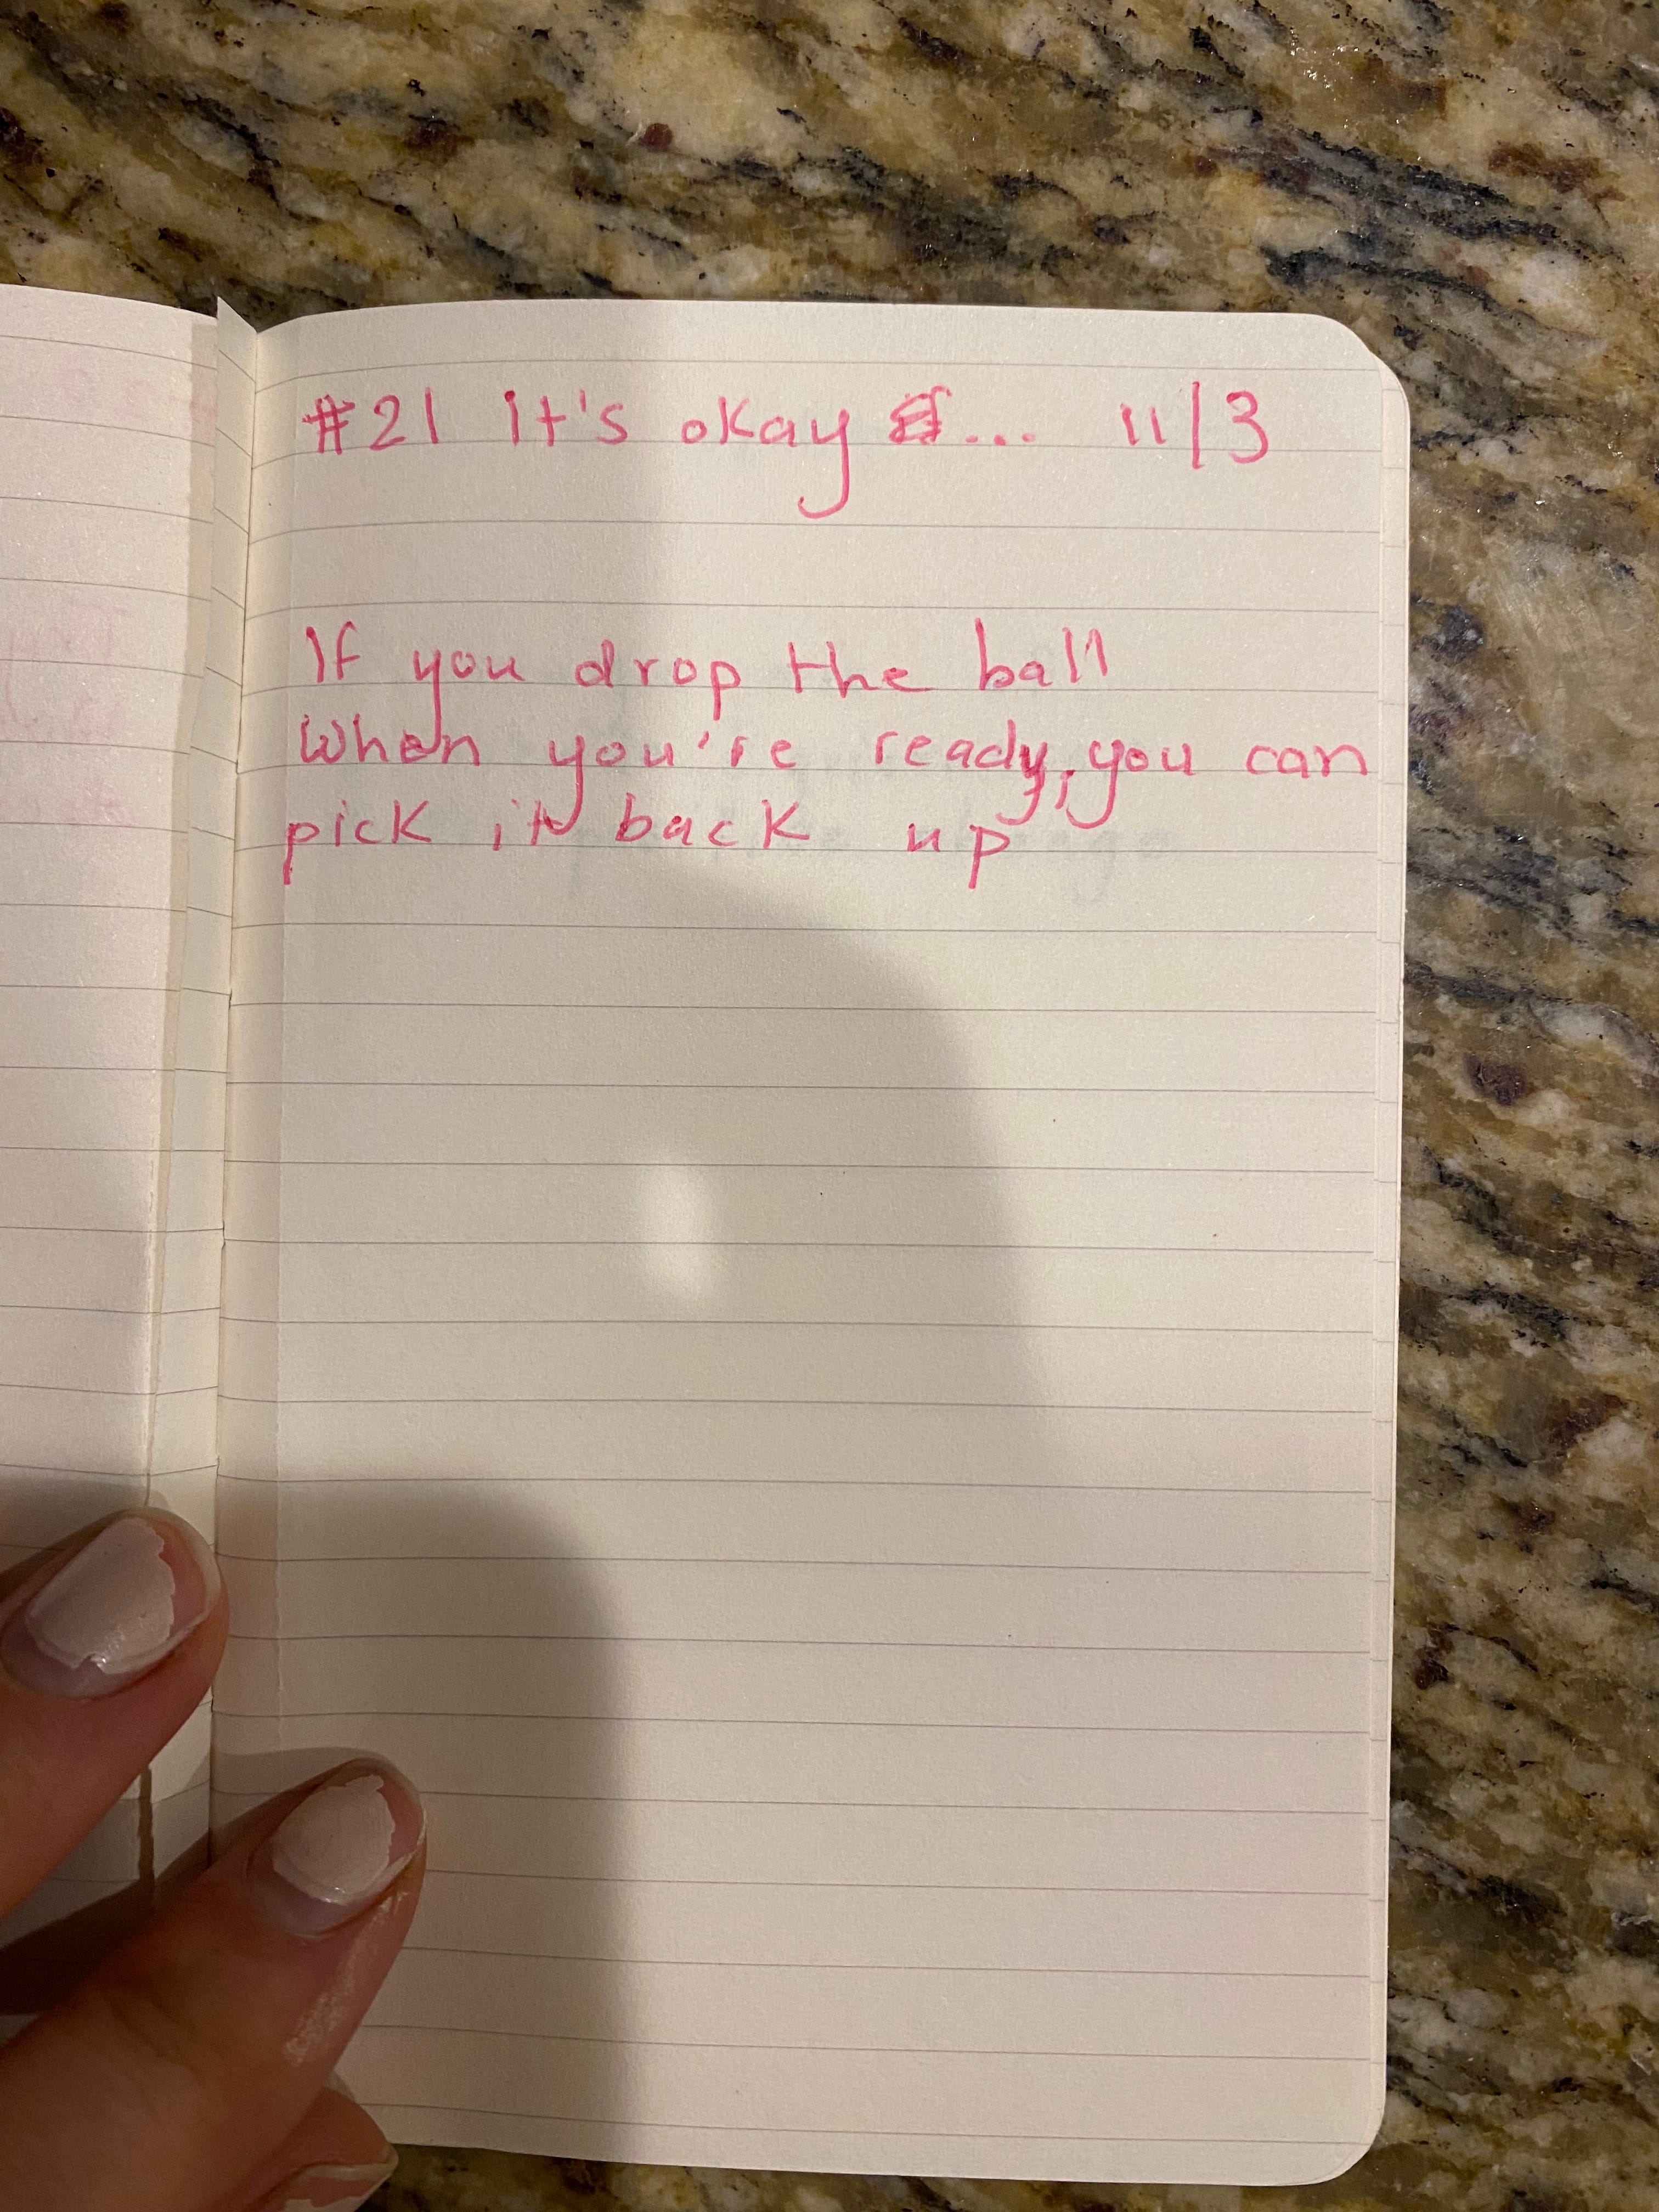 #21 It's okay ... 11/3
If you drop the ball
When you're ready, you can
pick it back up